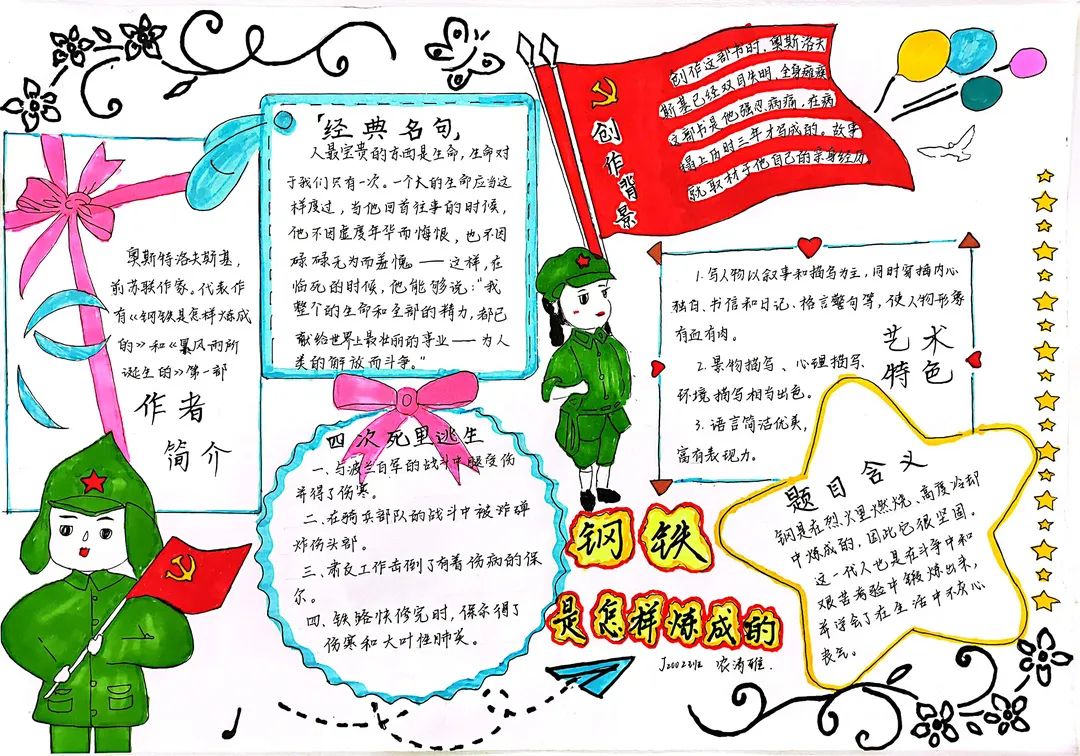 「经典名句」
人最宝贵的东西是生命,生命对
于我们只有一次。一个人的生命应当这
样度过,当他回首往事的时候,
他不因虚度年华而悔恨,也不因
碌碌无为而羞愧——这样,在
临死的时候,他能够说:“我
整个的生命和全部的精力,都已
献给世界上最壮丽的事业——为人
类的解放而斗争。”
创作背景
创作这部书时,奥斯洛夫
斯基已经双目失明,全身瘫痪
这部书是他强忍病痛,在病
榻上历时三年才写成的。故事
就取材于他自己的亲身经历
奥斯特洛夫斯基,
前苏联作家。代表作
有《钢铁是怎样炼成
的》和《暴风雨所
诞生的》第一部
作者
简介
1.写人物以叙事和描写为主,同时穿插内心
独白、书信和日记、格言警句等,使人物形象
有血有肉。
2.景物描写、心理描写、
环境描写相当出色。
3.语言简洁优美,
富有表现力。
艺术
特色
四次死里逃生
一、与波兰白军的战斗中腿受伤
并得了伤寒。
二、在骑兵部队的战斗中被炸弹
炸伤头部。
三、肃反工作击倒了有着伤病的保
尔。
四、铁路快修完时,保尔得了
伤寒和大叶性肺炎。
题目含义
钢是在烈火里燃烧、高度冷却
中炼成的,因此它很坚固。
这一代人也是在斗争中和
艰苦考验中锻炼出来,
并学会了在生活中不灰心
丧气。
钢铁
是怎样炼成的
J2002班